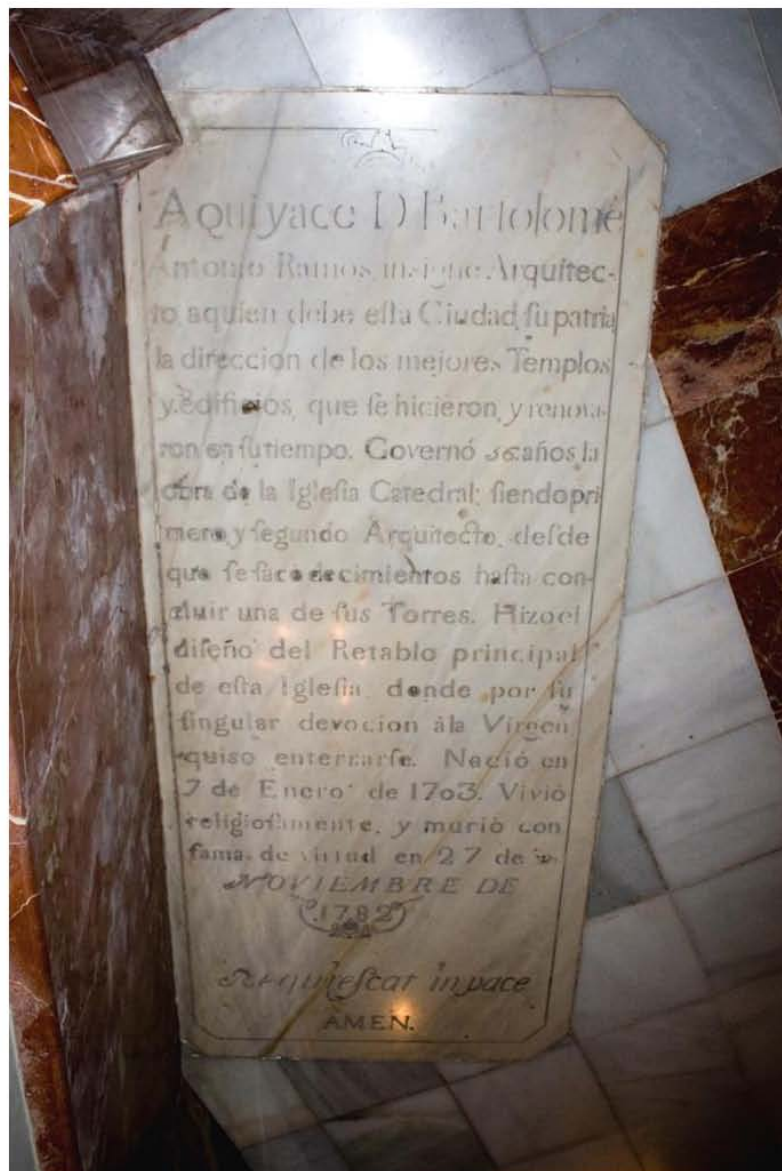 Aqui yace D Bartolomé
Antonio Ramos, insigne Arquitec-
to, aquien debe eſta Ciudad, ſu patria
la direccion de los mejores Templos
y edificios, que ſe hicieron, y renova-
ron en ſu tiempo. Governó años la
obra de la Igleſia Catedral; ſiendo pri
mero y ſegundo Arquitecto, deſde
que ſe ſacó de cimientos haſta con-
cluir una de ſus Torres. Hizo el
diſeño del Retablo principal
de eſta Igleſia, donde por ſu
ſingular devocion àla Virgen
quiso enterrarſe. Nació en
7 de Enero de 1703. Vivió
religioſamente, y murió con
fama de virtud en 27 de
NOVIEMBRE DE
.1782
Requieſcat in pace
AMEN.